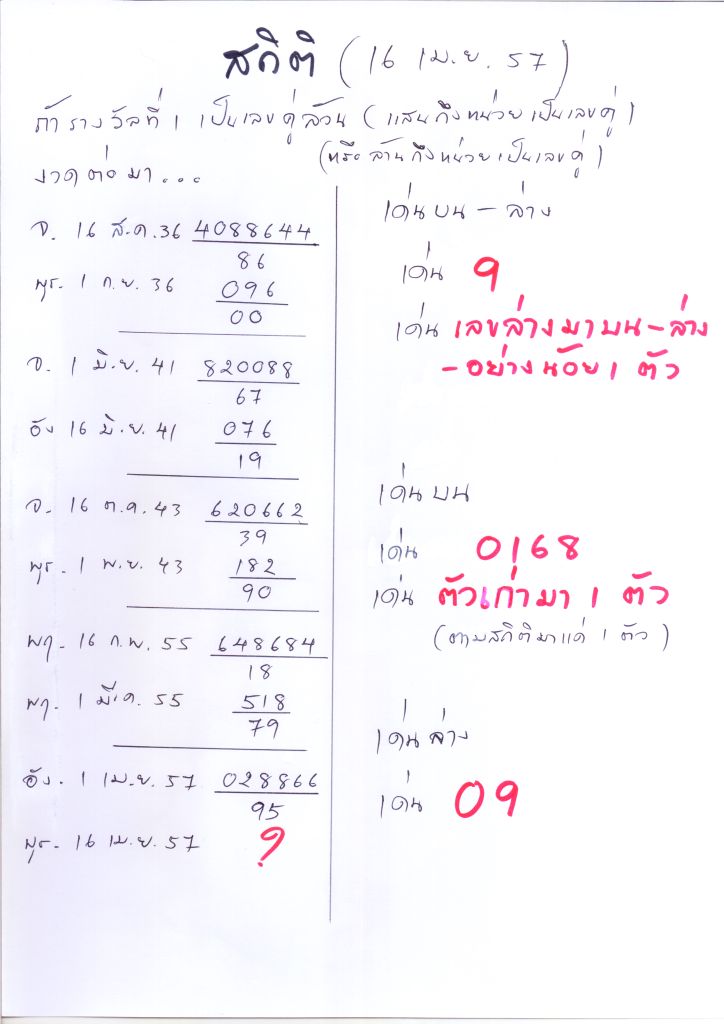 สถิติ (16 เม.ย. 57)
ถ้ารางวัลที่ 1 เป็นเลขคู่ล้วน (แสนถึงหน่วยเป็นเลขคู่)
(หรือล้านถึงหน่วยเป็นเลขคู่)
งวดต่อมา...
จ. 16 ส.ค. 36 4088644
86
พุธ. 1 ก.ย. 36 096
00
จ. 1 มิ.ย. 41 820088
67
อัง 16 มิ.ย. 41 076
19
จ. 16 ต.ค. 43 620662
39
พุธ. 1 พ.ย. 43 182
90
พฤ. 16 ก.พ. 55 648684
18
พฤ. 1 มี.ค. 55 518
79
อัง. 1 เม.ย. 57 028866
95
พุธ. 16 เม.ย. 57 ?
เด่นบน - ล่าง
เด่น 9
เด่น เลขล่างมาบน - ล่าง
- อย่างน้อย 1 ตัว
เด่นบน
เด่น 0168
เด่น ตัวเก่ามา 1 ตัว
(ตามสถิติมาแค่ 1 ตัว)
เด่นล่าง
เด่น 09